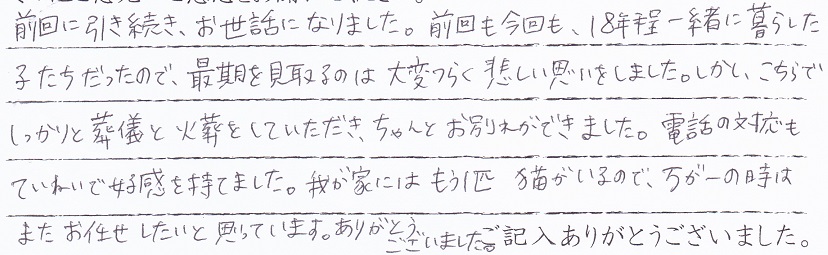 前回に引き続き、お世話になりました。前回も今回も、18年程一緒に暮らした
子たちだったので、最期を見取るのは大変つらく悲しい思いをしました。しかし、こちらで
しっかりと葬儀と火葬をしていただき、ちゃんとお別れができました。電話の対応も
ていねいで好感を持てました。我が家にはもう1匹 猫がいるので、万が一の時は
またお任せしたいと思っています。ありがとうございました。
ご記入ありがとうございました。